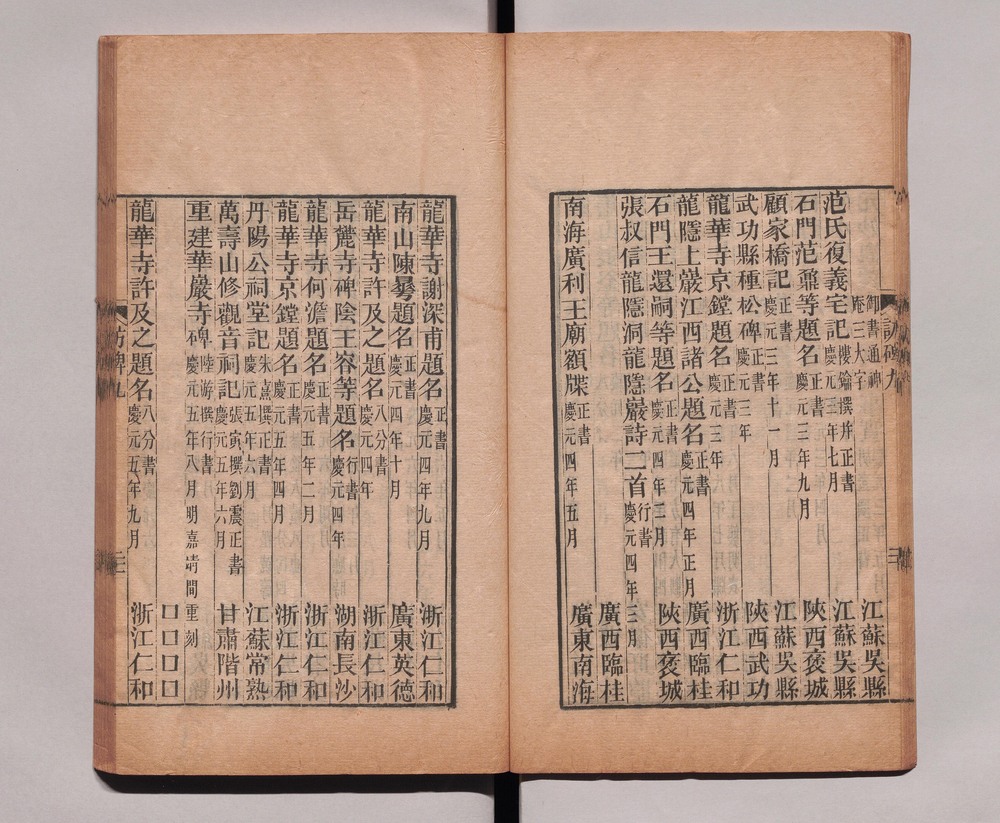 御書通神
庵三大字 江蘇吳縣
范氏復義宅記 樓鑰撰并正書 慶元三年七月 江蘇吳縣
石門范鼐等題名 正書 慶元三年九月 陝西褒城
顧家橋記 正書 慶元三年十一月 江蘇吳縣
武功縣種松碑 正書 慶元三年 陝西武功
龍華寺京鏜題名 正書 慶元三年 浙江仁和
龍隱上巖江西諸公題名 正書 慶元四年正月 廣西臨桂
石門王還嗣等題名 正書 慶元四年三月 陝西褒城
張叔信龍隱洞龍隱巖詩二首 行書 慶元四年三月
廣西臨桂
南海廣利王廟額牒 正書 慶元四年五月 廣東南海
龍華寺謝深甫題名 正書 慶元四年九月 浙江仁和
南山陳曓題名 正書 慶元四年十月 廣東英德
龍華寺許及之題名 八分書 慶元四年 浙江仁和
岳麓寺碑陰王容等題名 行書 慶元四年 湖南長沙
龍華寺何澹題名 正書 慶元五年二月 浙江仁和
龍華寺京鏜題名 正書 慶元五年四月 浙江仁和
丹陽公祠堂記 朱熹撰正書 慶元五年六月 江蘇常熟
萬壽山修觀音祠記 張寅撰劉震正書 慶元五年六月 甘肅階州
重建華嚴寺碑 陸游撰行書 慶元五年八月明嘉靖間重刻
囗囗囗囗
龍華寺許及之題名 八分書 慶元五年九月 浙江仁和
訪碑九
三